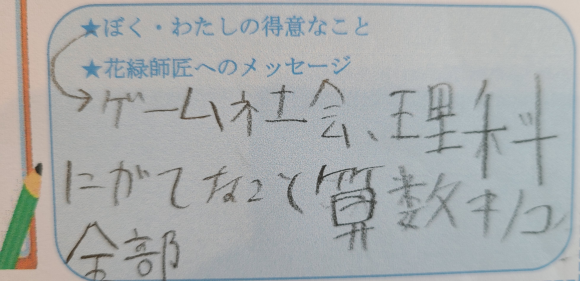 ★ぼく・わたしの得意なこと
★花緑師匠へのメッセージ
ゲーム社会、理科
にがてなこと算数キノコ
全部